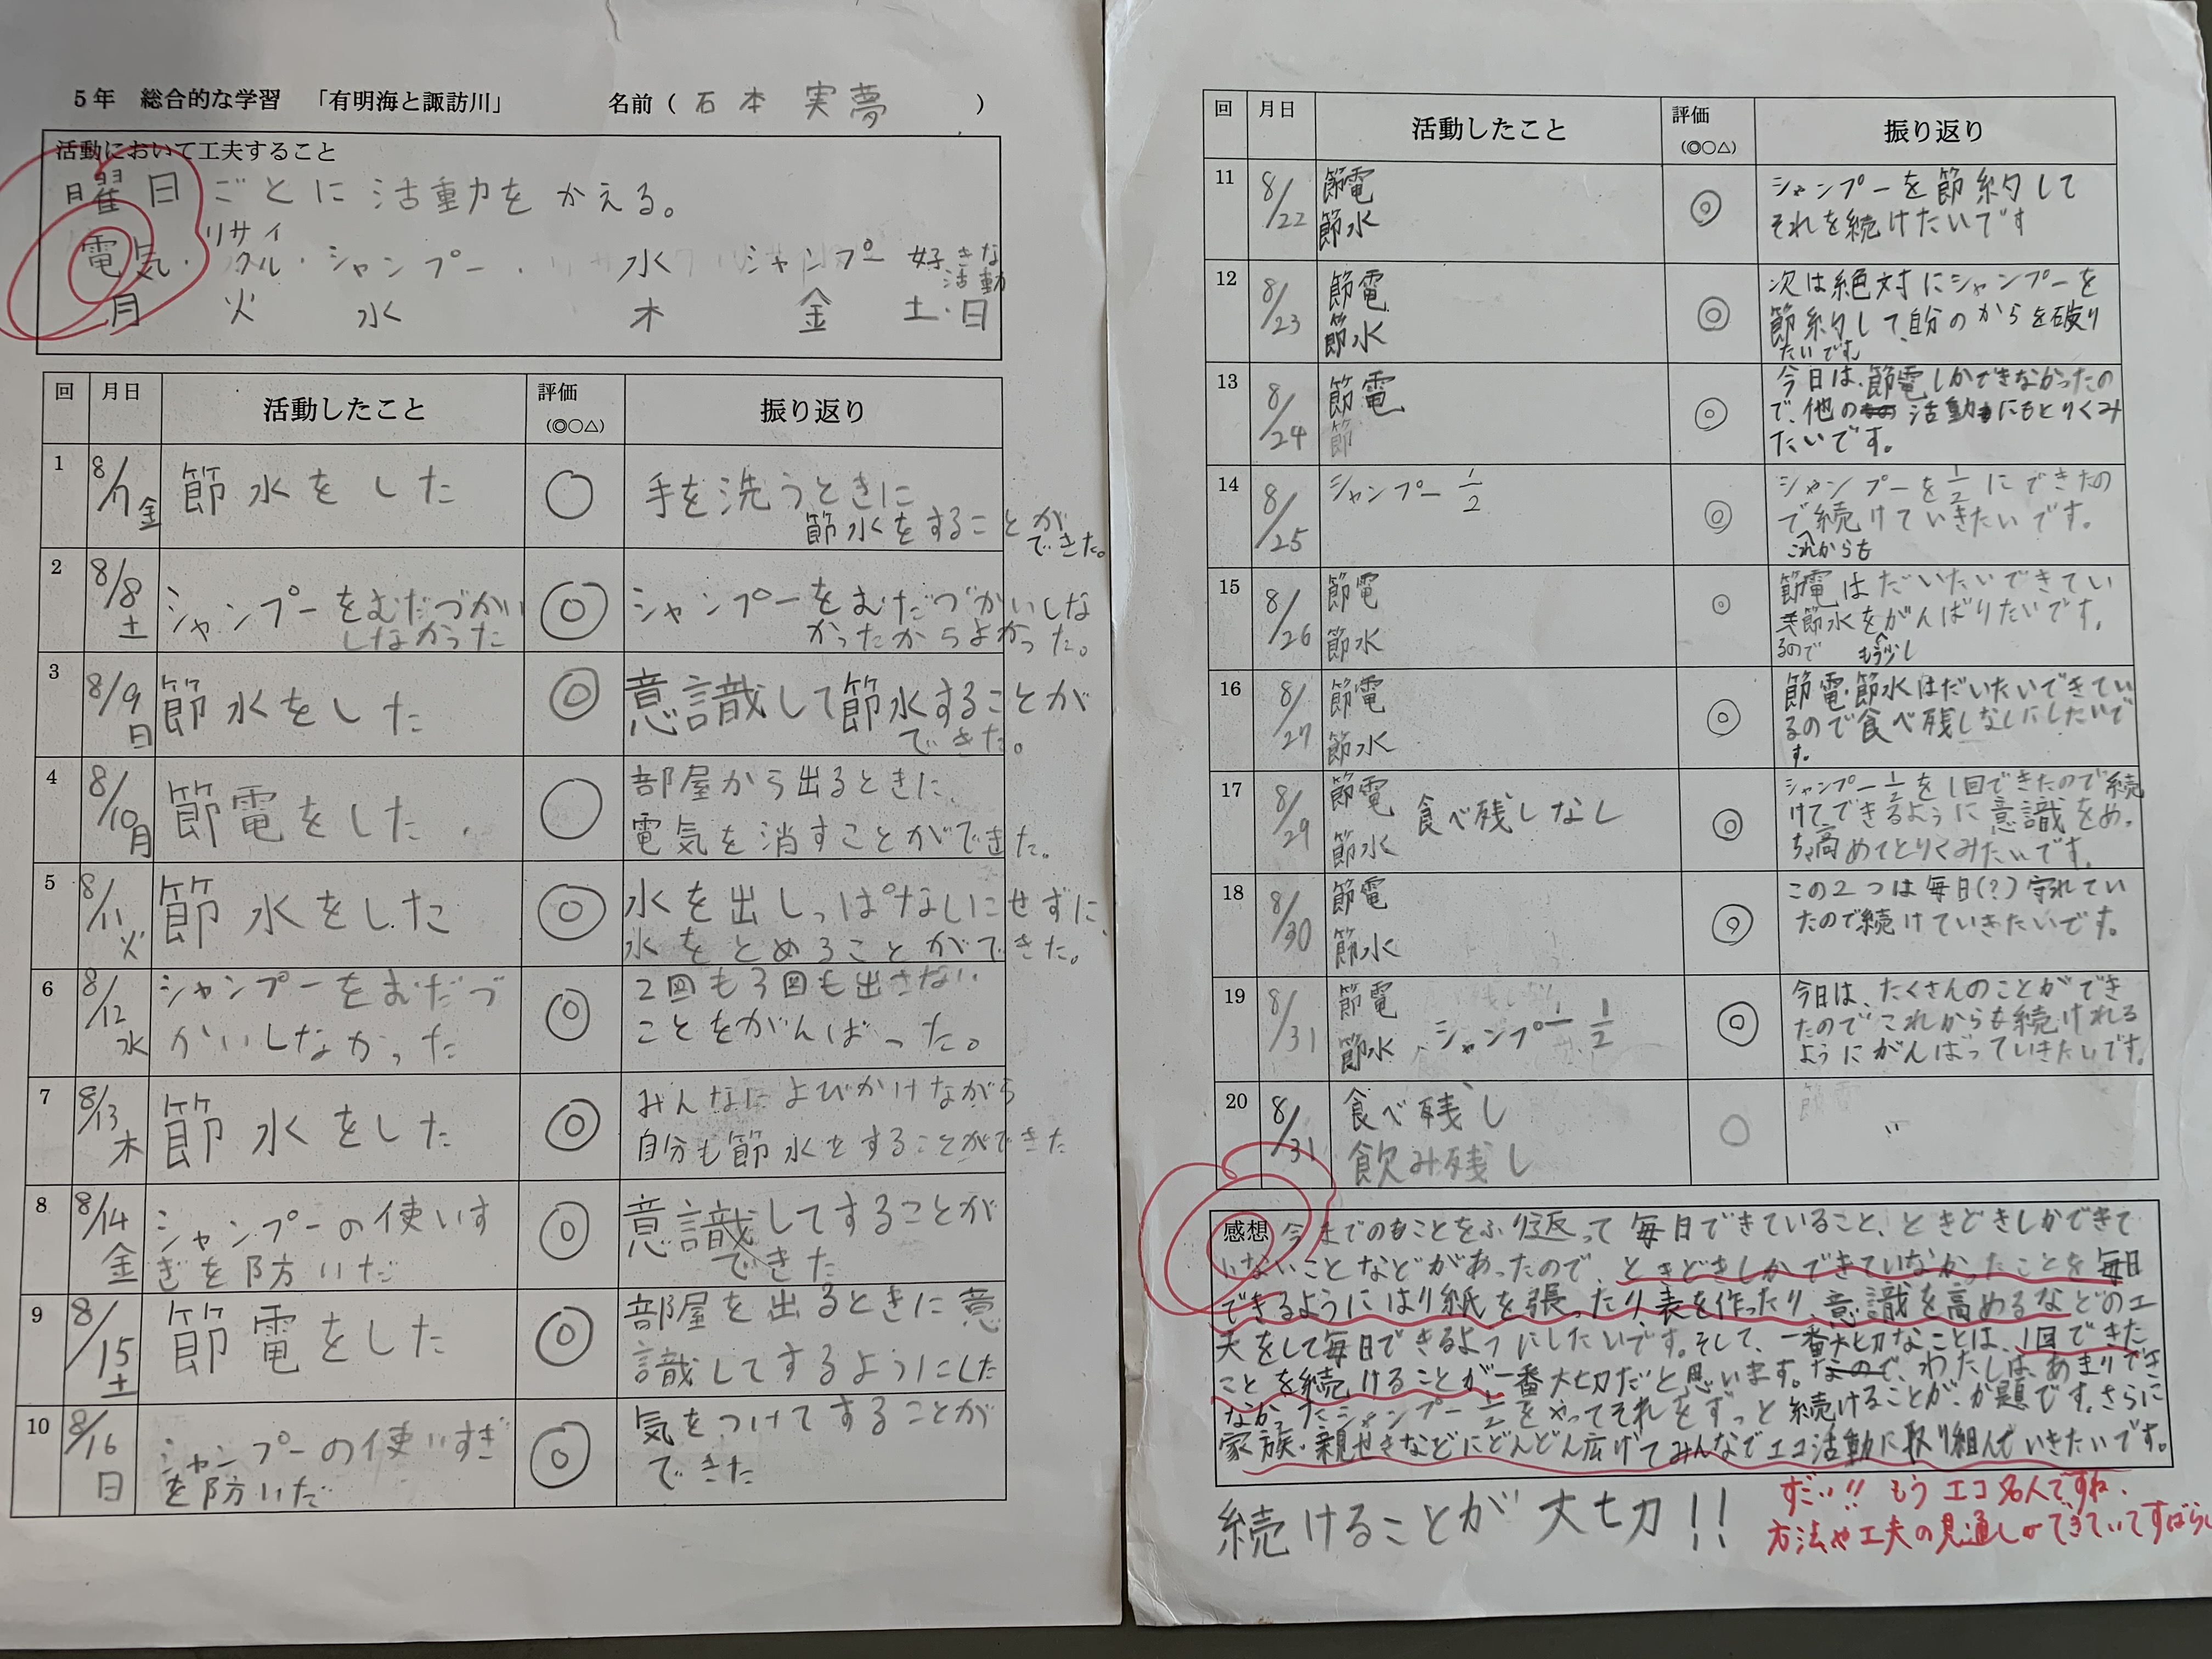 5年 総合的な学習 「有明海と諏訪川」 名前( 石本 実夢 )
活動において工夫すること
曜日ごとに活動をかえる。
電気・リサイクル・シャンプー・ 水 シャンプー 好きな活動
月 火 水 木 金 土・日
回 月日 活動したこと 評価(◎○△) 振り返り
1 8/7金 節水をした ○ 手を洗うときに
節水をすることが
できた。
2 8/8土 シャンプーをむだづかい ◎ シャンプーをむだづかいしな
しなかった かったからよかった。
3 8/9日 節水をした ◎ 意識して節水することが
できた。
4 8/10月 節電をした ○ 部屋から出るときに、
電気を消すことができた。
5 8/11火 節水をした ◎ 水を出しっぱなしにせずに、
水をとめることができた。
6 8/12水 シャンプーをむだづ ◎ 2回も3回も出さない
かいしなかった ことをがんばった。
7 8/13木 節水をした ◎ みんなによびかけながら
自分も節水をすることができた
8 8/14金 シャンプーの使いす ◎ 意識してすることが
ぎを防いだ できた
9 8/15土 節電をした ◎ 部屋を出るときに意
識してするようにした
10 8/16日 シャンプーの使いすぎ ◎ 気をつけてすることが
を防いだ できた
回 月日 活動したこと 評価(◎○△) 振り返り
11 8/22 節電 ◎ シャンプーを節約して
節水 それを続けたいです
12 8/23 節電 ◎ 次は絶対にシャンプーを
節水 節約して、自分のからを破り
たいです
13 8/24 節電 ◎ 今日は、節電しかできなかったの
節 で、他の活動にもとりくみ
たいです。
14 8/25 シャンプー1/2 ◎ シャンプーを1/2にできたの
で続けていきたいです。
これからも
15 8/26 節電 ◎ 節電はだいたいできてい
節水 節水をがんばりたいです。
るので もう少し
16 8/27 節電 ◎ 節電・節水はだいたいできてい
節水 るので食べ残しなしにしたいで
す。
17 8/29 節電 食べ残しなし ◎ シャンプー1/2を1回できたので続
節水 けて、できるように意識をめ
高めてとりくみたいです。
18 8/30 節電 ◎ この2つは毎日(?)守れてい
節水 たので続けていきたいです。
19 8/31 節電 ◎ 今日は、たくさんのことができ
節水 シャンプー1/2 たのでこれからも続けれる
ようにがんばっていきたいです。
20 8/31 食べ残し ○ 〃
飲み残し
感想 今までのことをふり返って毎日できていること、ときどきしかできて
いないことなどがあったので、ときどきしかできていなかったことを毎日
できるようにはり紙を張ったり、表を作ったり、意識を高めるなどの工
夫をして毎日できるようにしたいです。そして、一番大切なことは、1回できた
ことを続けることが一番大切だと思います。なので、わたしは、あまりでき
なかったシャンプー1/2をやってそれをずっと続けることが、か題です。さらに
家族・親せきなどにどんどん広げてみんなでエコ活動に取り組んでいきたいです。
続けることが大切!!
すごい!! もうエコ名人ですね。
方法や工夫の見通しができていてすばらし